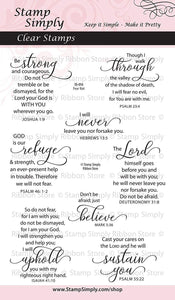 Stamp
Simply
Keep it Simple - Make it Pretty
Clear Stamps
Be strong
and courageous.
Do not
tremble or be
dismayed, for the
Lord your God is
WITH YOU
wherever you go.
JOSHUA 1:9
Though I
walk through
the valley of
the shadow of death,
I will fear no evil,
for You are with me.
PSALM 23:4
I will
never
leave you nor forsake you.
HEBREWS 13:5
GOD
is our
refuge
& strength,
an ever-present help
in trouble. Therefore
we will not fear.
PSALM 46:1-2
The Lord
himself goes
before you and
will be with you; he
will never leave you
nor forsake you.
Do not be afraid;
Don't be
afraid; just
believe
MARK 5:36
So do not fear,
for I am with you;
do not be dismayed,
for I am your God.
I will strengthen
you and help you;
I will
uphold
you with my
righteous right hand.
ISAIAH 41:10
Cast your cares on
the Lord and he will
sustain
you
PSALM 55:22
www.StampSimply.com/shop